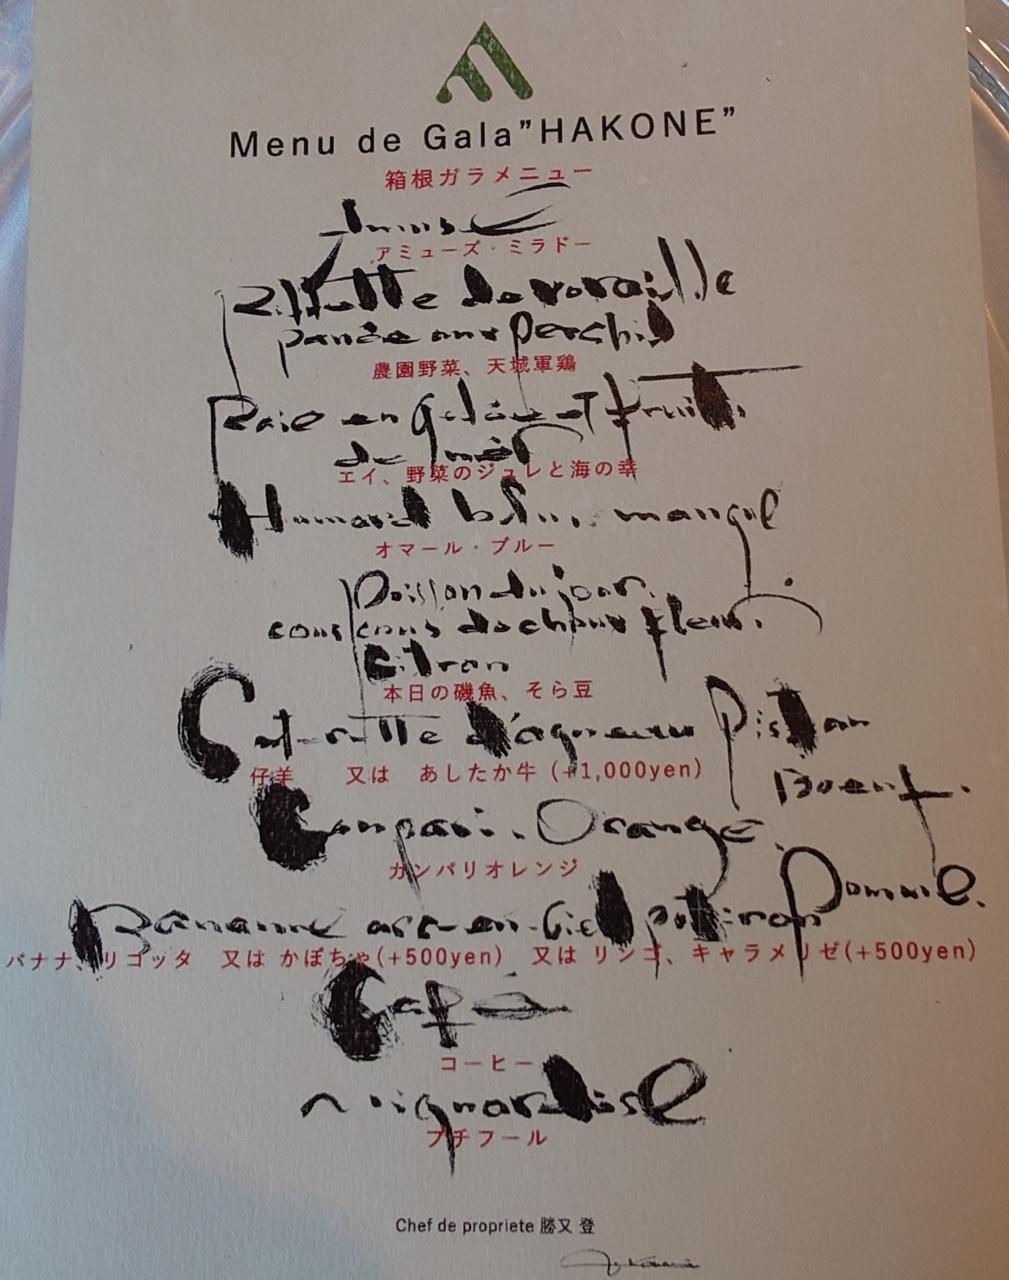 Menu de Gala"HAKONE"
箱根ガラメニュー
アミューズ・ミラドー
de volaille
panée aux
農園野菜、天城軍鶏
Raie en Gelée et fruits
de mer
エイ、野菜のジュレと海の幸
Homard bleu, mangue
オマール・ブルー
Poisson du jour.
couscous de choux fleur.
Citron
本日の磯魚、そら豆
Cotelette d'agneau
仔羊 又は あしたか牛 (+1,000yen)
Boeuf.
Campari. Orange.
カンパリオレンジ
Pomme.
Banane arc-en-ciel potiron
バナナ、リコッタ 又は かぼちゃ(+500yen) 又は リンゴ、キャラメリゼ(+500yen)
Café
コーヒー
Mignardise
プチフール
Chef de propriete 勝又 登